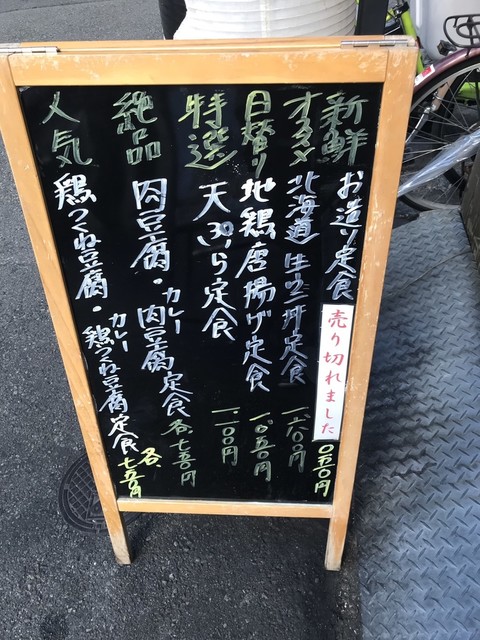 新鮮 お造り定食 売り切れました 〇五〇円
オススメ 北海道生ウニ丼定食 一、六〇〇円
日替り 地鶏唐揚げ定食 一、〇五〇円
特選 天ぷら定食 一、一〇〇円
絶品 肉豆腐・カレー肉豆腐定食 各七五〇円
人気 鶏つくね豆腐・カレー鶏つくね豆腐定食 各、七五〇円